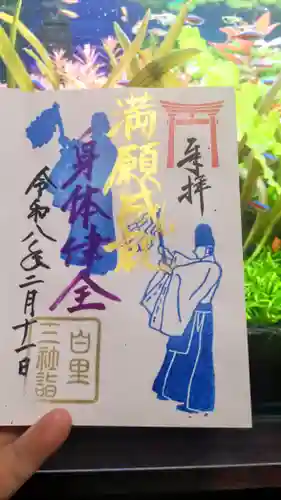 奉拝
満願成就
身体健全
令和八年二月十一日
白里
三社詣